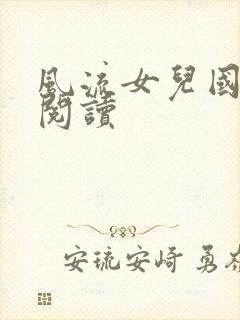 風流女兒國
閱讀
安琉安崎 勇